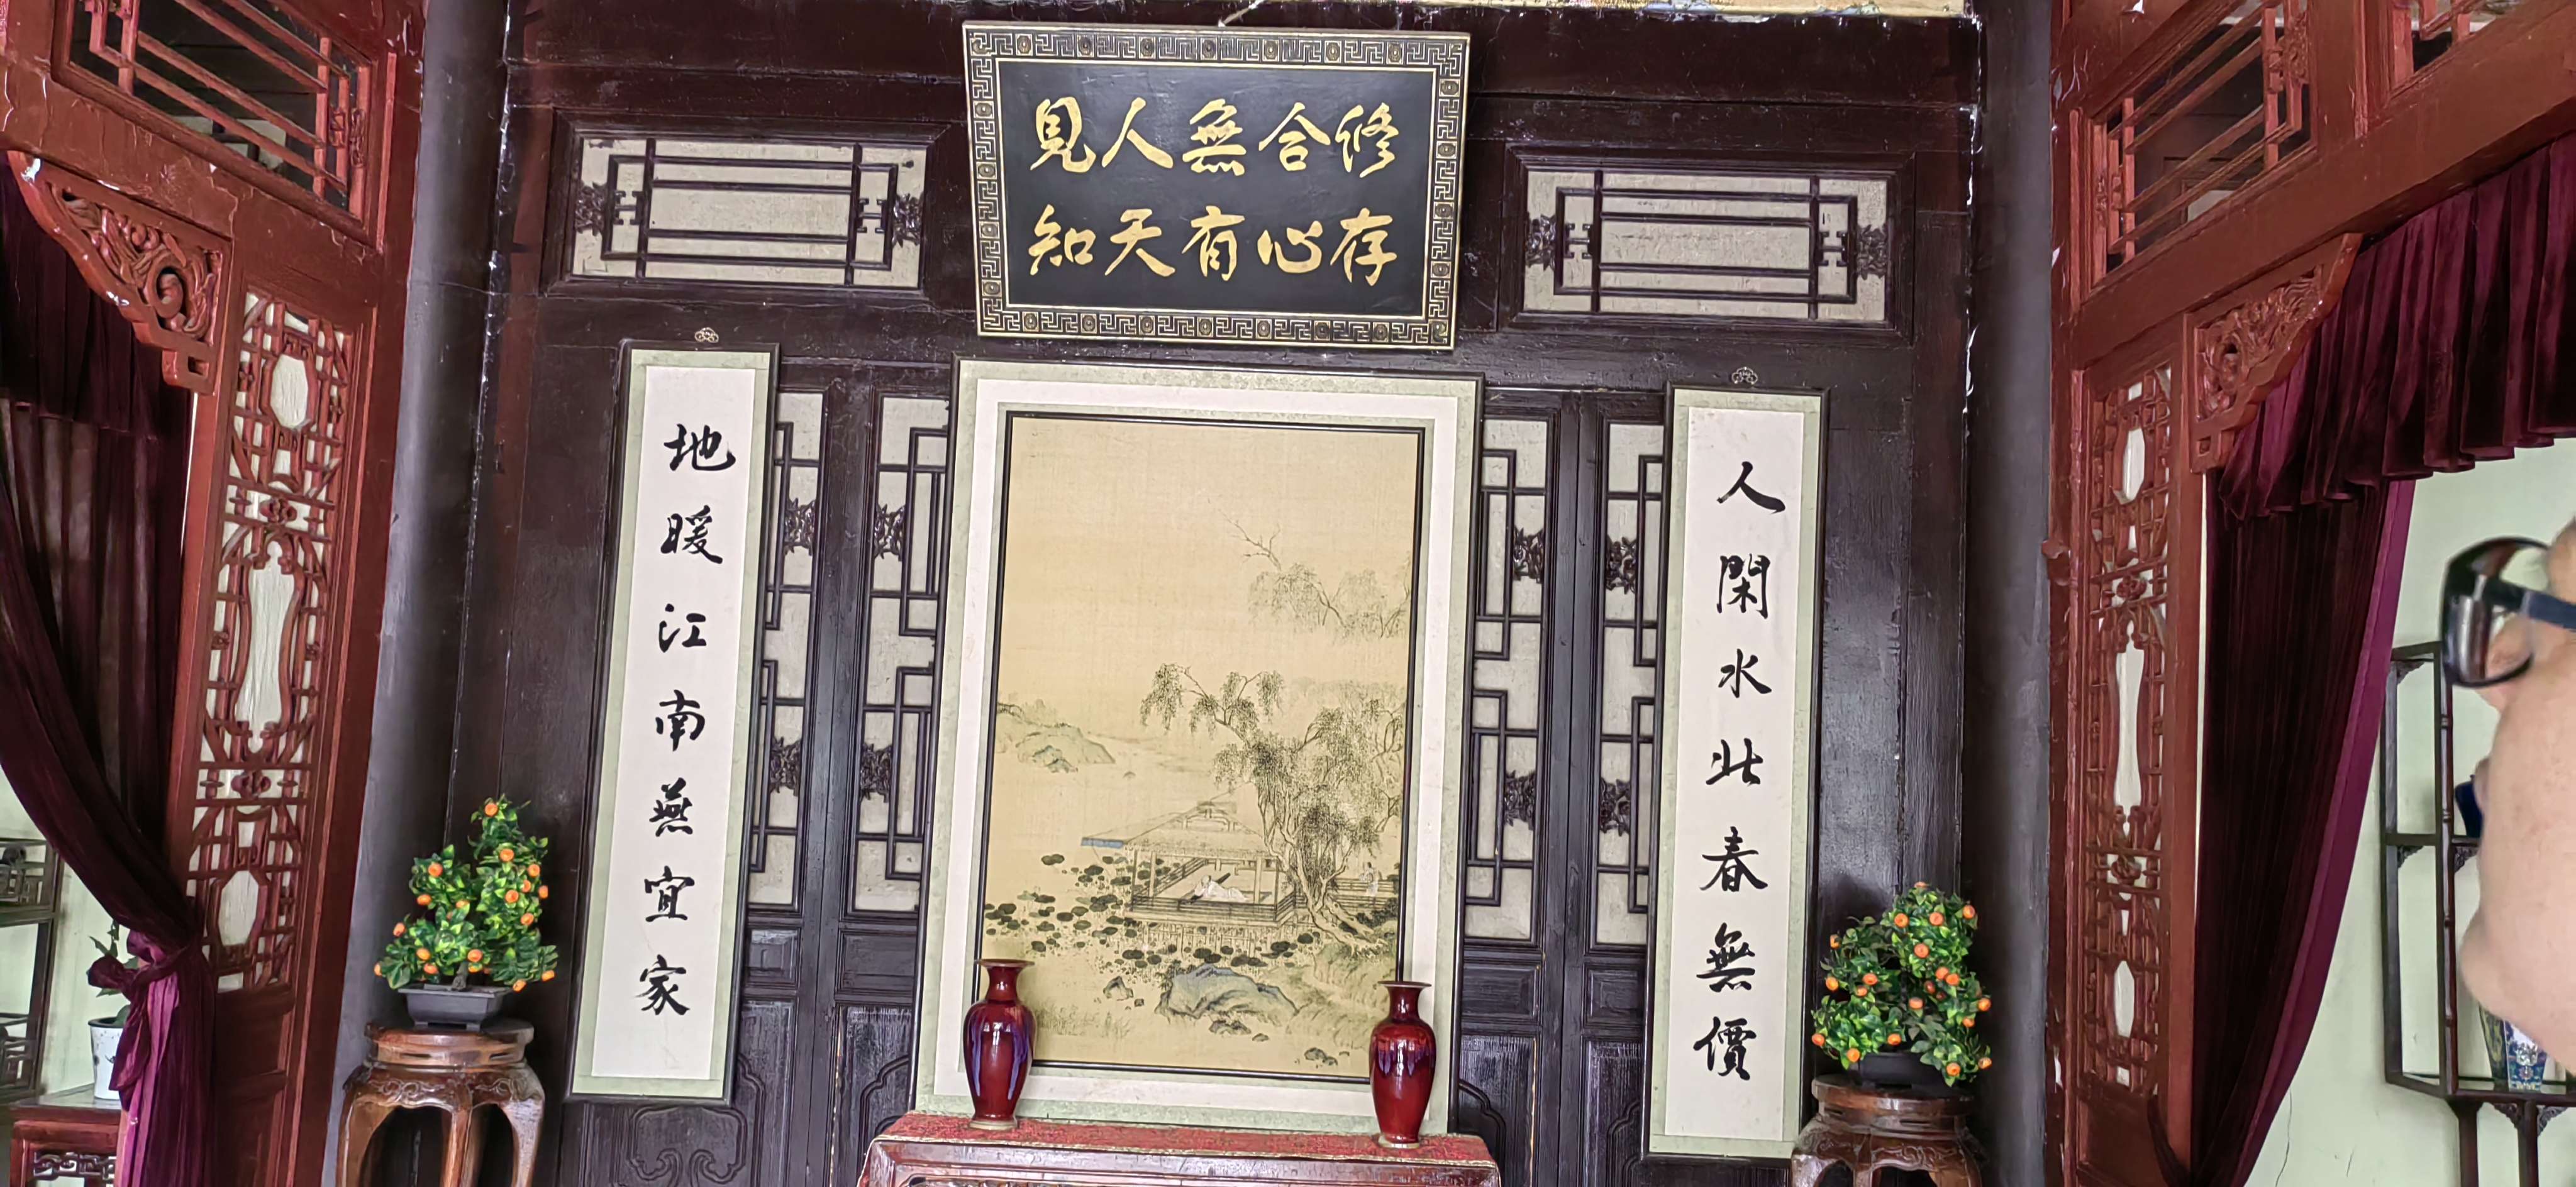 修合無人見
存心有天知
人閑水北春無價
地暖江南燕宜家